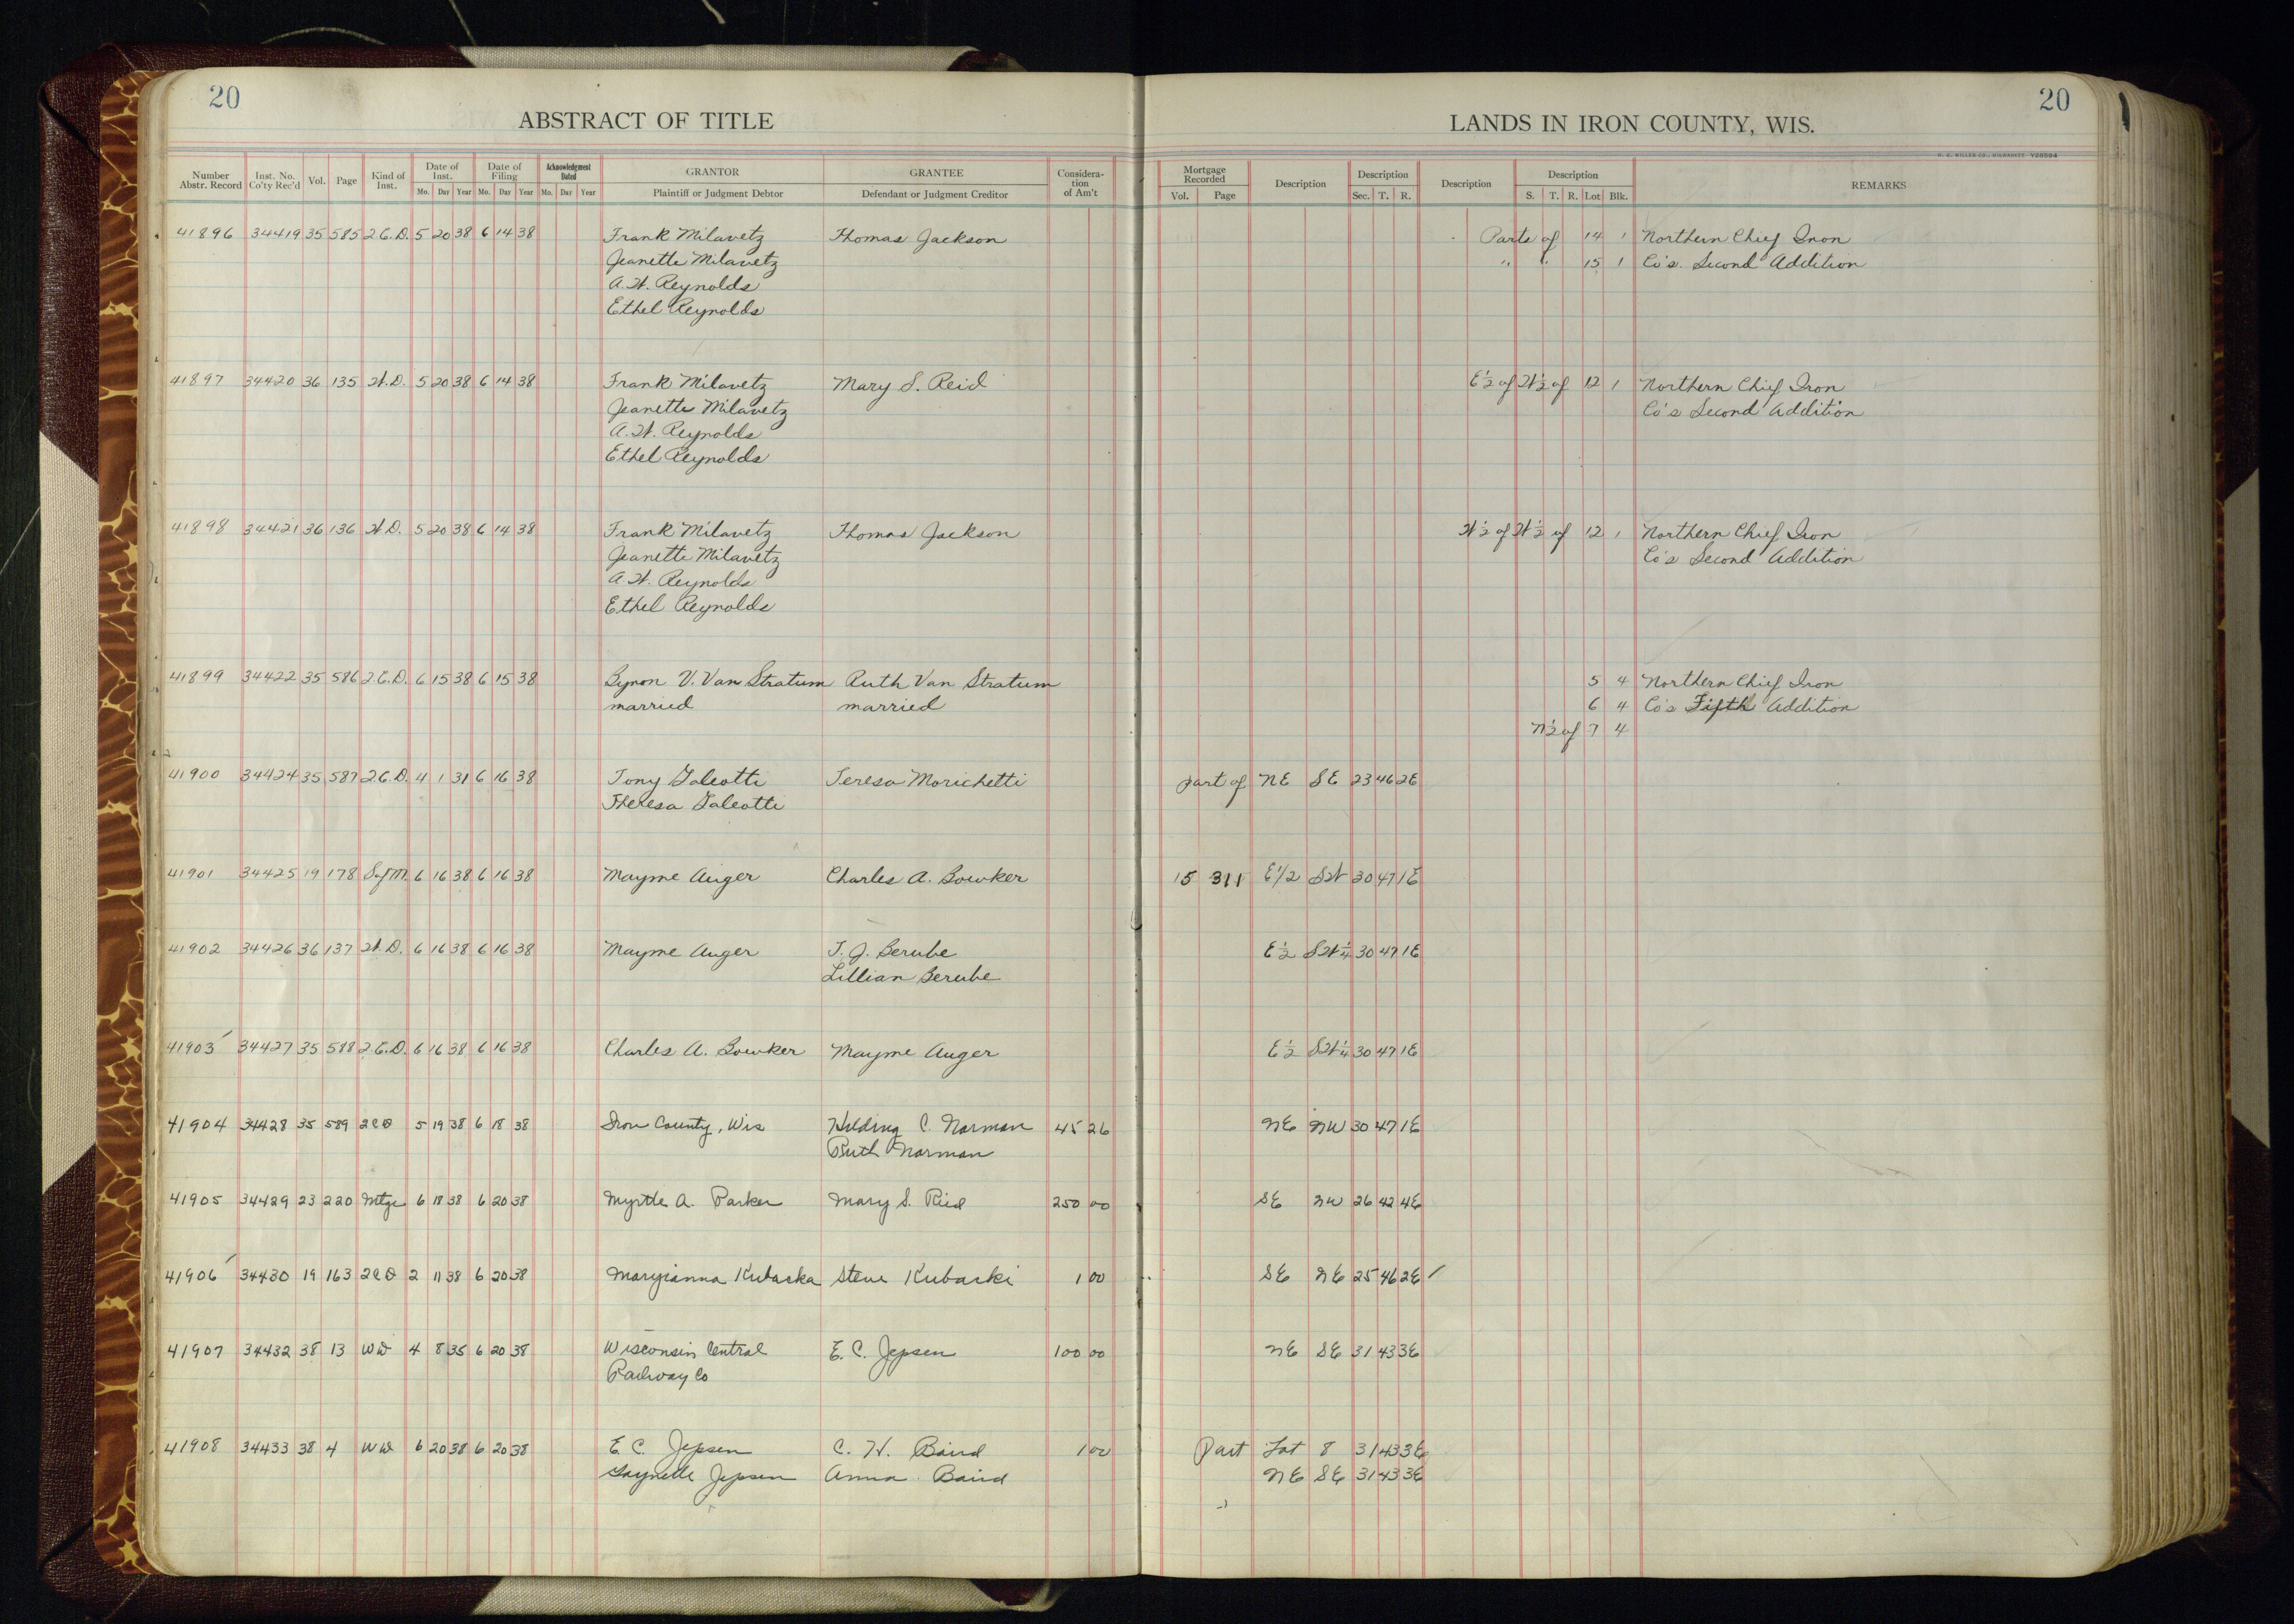 20
ABSTRACT OF TITLE
Number Abstr. Record Inst. No. Co'ty Rec'd Vol. Page Kind of Inst. Date of Inst. Mo. Day Year Date of Filing Mo. Day Year Acknowledgment Dated Mo. Day Year GRANTOR Plaintiff or Judgment Debtor GRANTEE Defendant or Judgment Creditor Consideration of Am't
LANDS IN IRON COUNTY, WIS.
20
H. C. MILLER CO., MILWAUKEE Y28594
Mortgage Recorded Vol. Page Description Description Sec. T. R. Description Description S. T. R. Lot Blk. REMARKS
41896 34419 35 585 2.C.D. 5 20 38 6 14 38 Frank Milavetz Thomas Jackson Parts of 14 1 Northern Chief Iron
Jeanette Milavetz " " 15 1 Co's. Second Addition
A.W. Reynolds
Ethel Reynolds
41897 34420 36 135 W.D. 5 20 38 6 14 38 Frank Milavetz Mary S. Reid E½ of W½ of 12 1 Northern Chief Iron
Jeanette Milavetz Co's Second Addition
A.W. Reynolds
Ethel Reynolds
41898 34421 36 136 W.D. 5 20 38 6 14 38 Frank Milavetz Thomas Jackson W½ of W½ of 12 1 Northern Chief Iron
Jeanette Milavetz Co's Second Addition
A.W. Reynolds
Ethel Reynolds
41899 34422 35 586 2.C.D. 6 15 38 6 15 38 Byron V. Van Stratum Ruth Van Stratum 5 4 Northern Chief Iron
married married 6 4 Co's Fifth Addition
N½ of 7 4
41900 34424 35 587 2.C.D. 4 1 31 6 16 38 Tony Galeotti Teresa Morichetti part of NE SE 23 46 2E
Theresa Galeotti
41901 34425 19 178 Sat M. 6 16 38 6 16 38 Mayme Auger Charles A. Bowker 15 311 E1/2 SW 30 47 1E
41902 34426 36 137 W.D. 6 16 38 6 16 38 Mayme Auger T. J. Berube E½ SW¼ 30 47 1E
Lillian Berube
41903 34427 35 588 2.C.D. 6 16 38 6 16 38 Charles A. Bowker Mayme Auger E½ SW¼ 30 47 1E
41904 34428 35 589 2CD 5 19 38 6 18 38 Iron County, Wis Hilding C. Norman 45 26 NE NW 30 47 1E
Ruth Norman
41905 34429 23 220 Mtge 6 18 38 6 20 38 Myrtle A. Parker Mary S. Ried 250 00 SE NW 26 42 4E
41906 34430 19 163 2CD 2 11 38 6 20 38 Maryianna Kubacka Steve Kubacki 1 00 SE NE 25 46 2E ✓
41907 34432 38 13 WD 4 8 35 6 20 38 Wisconsin Central E. C. Jepsen 100 00 NE SE 31 43 3E
Railway Co
41908 34433 38 4 WD 6 20 38 6 20 38 E. C. Jepsen C. H. Baird 1 00 Part Lot 8 31 43 3E
Jepsen Anna Baird NE SE 31 43 3E